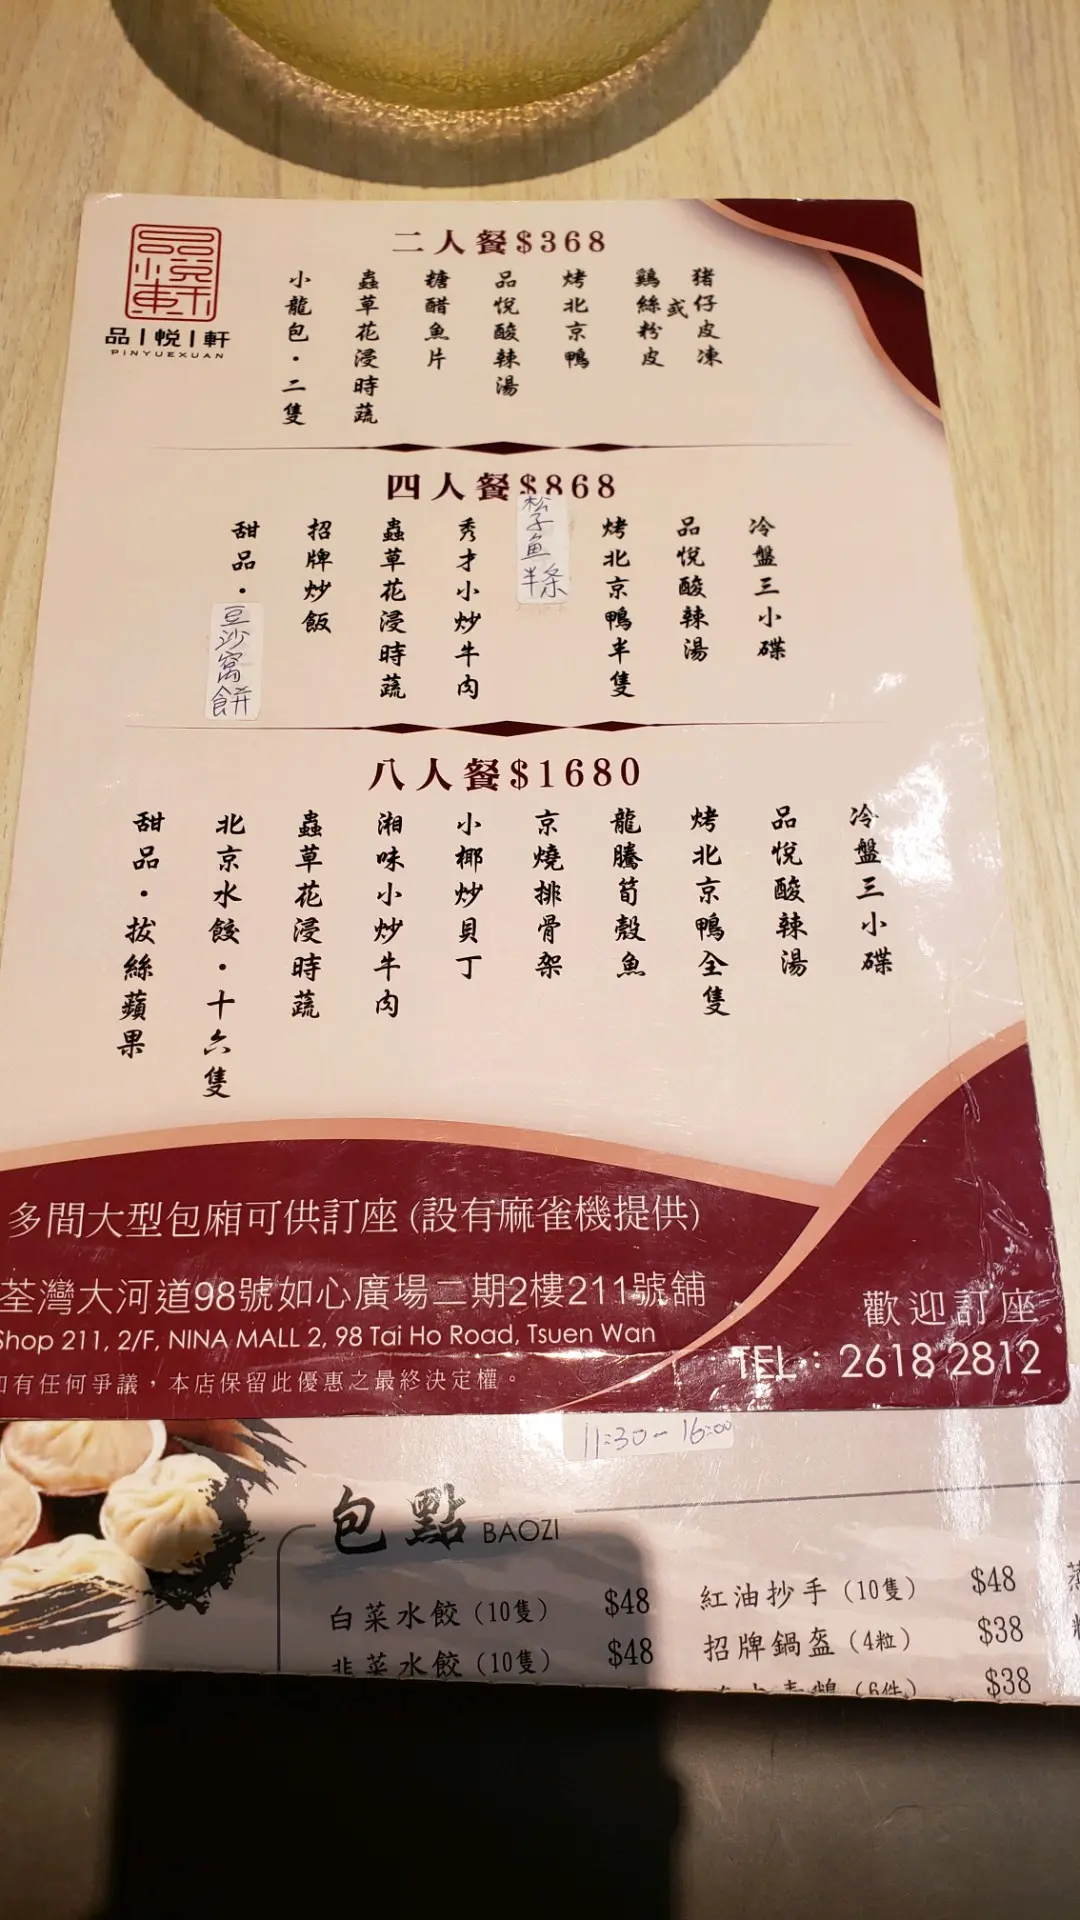 品|悦|軒
PINYUEXUAN
二人餐$368
猪仔皮凍
或
鷄絲粉皮
烤北京鴨
品悅酸辣湯
糖醋魚片
蟲草花浸時蔬
小龍包・二隻
四人餐$868
冷盤三小碟
品悅酸辣湯
烤北京鴨半隻
松子鱼半条
秀才小炒牛肉
蟲草花浸時蔬
招牌炒飯
甜品・豆沙窩餅
八人餐$1680
冷盤三小碟
品悅酸辣湯
烤北京鴨全隻
龍騰筍殼魚
京燒排骨架
小椰炒貝丁
湘味小炒牛肉
蟲草花浸時蔬
北京水餃・十六隻
甜品・拔絲蘋果
多間大型包廂可供訂座(設有麻雀機提供)
荃灣大河道98號如心廣場二期2樓211號舖
Shop 211, 2/F, NINA MALL 2, 98 Tai Ho Road, Tsuen Wan
如有任何爭議，本店保留此優惠之最終決定權。
歡迎訂座
TEL：2618 2812
11:30-16:00
包點 BAOZI
白菜水餃(10隻) $48
韭菜水餃(10隻) $48
紅油抄手(10隻) $48
招牌鍋盔(4粒) $38
(6件) $38